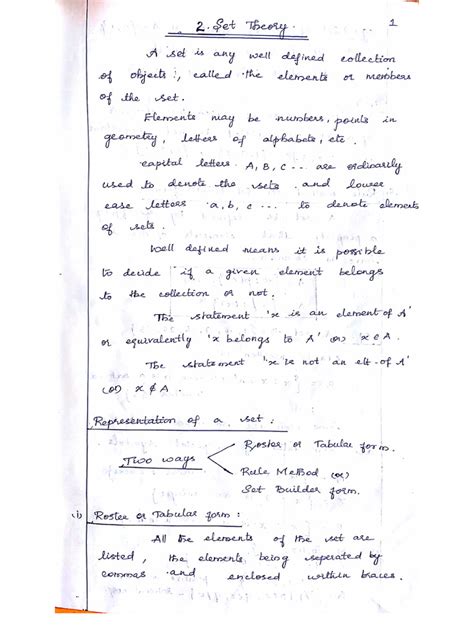 2. Set Theory.
1
A set is any well defined collection
of objects, called the elements or members
of the set.
Elements may be numbers, points in
geometry, letters of alphabets, etc.
capital letters A, B, C ... are ordinarily
used to denote the sets and lower
case letters a, b, c ... to denote elements
of sets.
Well defined means it is possible
to decide if a given element belongs
to the collection or not.
The statement 'x is an element of A'
or equivalently 'x belongs to A' (or) x ∈ A.
The statement 'x is not an elt. of A'
(or) x ∉ A.
Representation of a set:
Two ways
Roster or Tabular form.
Rule Method (or)
Set Builder form.
(i) Roster or Tabular form:
All the elements of the set are
listed, the elements being seperated by
commas and enclosed within braces.